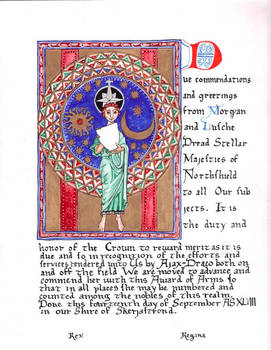 Due commendations
and greetings
from Morgan
and Lusche
Dread Stellar
Majesties of
Northshield
to all Our sub
jects. It is
the duty and
honor of the Crown to reward merit as it is
due and so in recognition of the efforts and
services rendered unto Us by Ajax-Draco both on
and off the field We are moved to advance and
commend her with this Award of Arms so
that in all places she may be numbered and
counted among the nobles of this realm.
Done this fourteenth day of September AS XLVIII
in our Shire of Skerjastrond.
Rex Regina